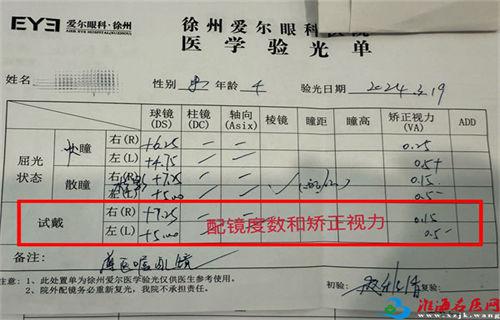 EYE 爱尔眼科·徐州
AIER EYE HOSPITAL·XUZHOU
徐州爱尔眼科医院
医学验光单
姓名 性别 男 年龄 4 验光日期 2024.3.19
球镜(DS) 柱镜(DC) 轴向(Asix) 棱镜 瞳距 瞳高 矫正视力(VA) ADD
屈光状态 小瞳 右(R) +6.25 — — 0.25
左(L) +4.75 — — 0.5+
散瞳 右(R) +7.25 — — 0.15
左(L) +5.00 — — 0.5-
试戴 右(R) +7.25 — — 0.15
左(L) +5.00 — — 0.5-
配镜度数和矫正视力
备注: 遵医嘱配镜
注意:1、此处置单为徐州爱尔医学验光仅供医生参考使用。
2、院外配镜务必重新复光,我院不承担责任。
初验: 复验:
淮海名医网
www.xzjk.wang